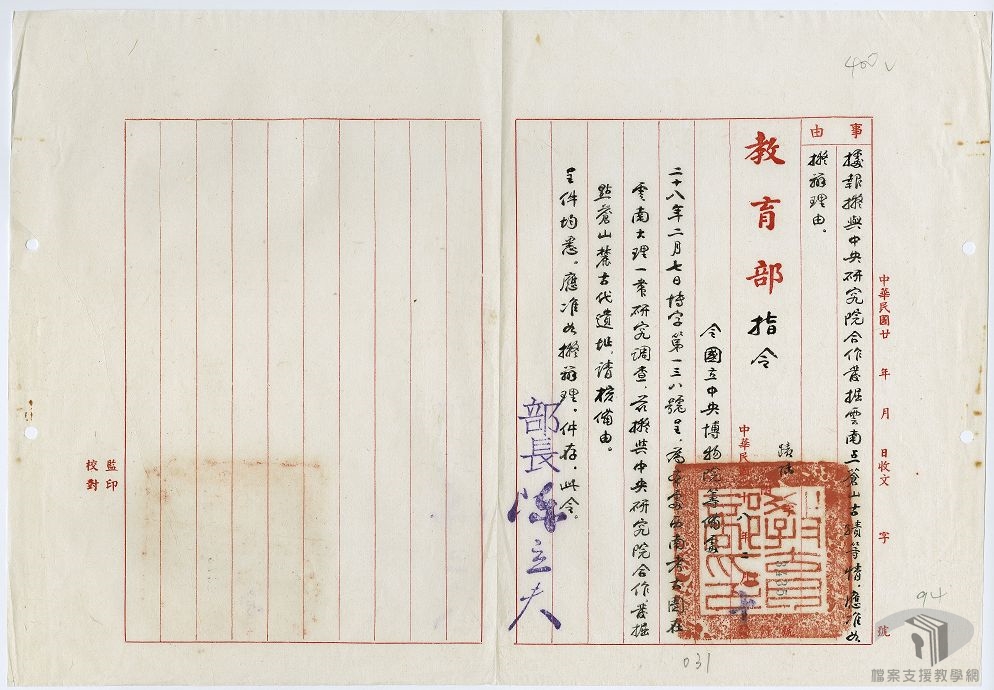 400
中華民國廿 年 月 日收文 字 號
事由
據報擬與中央研究院合作發掘雲南点蒼山古蹟等情，應准如
擬辦理由。
教育部指令
中華民 八年二 十
3435
令國立中央博物院籌備處
二十八年二月七日博字第一三八號呈，為本處西南考古團在
雲南大理一帶研究調查，茲擬與中央研究院合作，發掘
點蒼山麓古代遺址，請核備由。
呈件均悉。應准如擬辦理。件存，此令。
部長陳立夫
監印
校對
031
94
檔案支援教學網